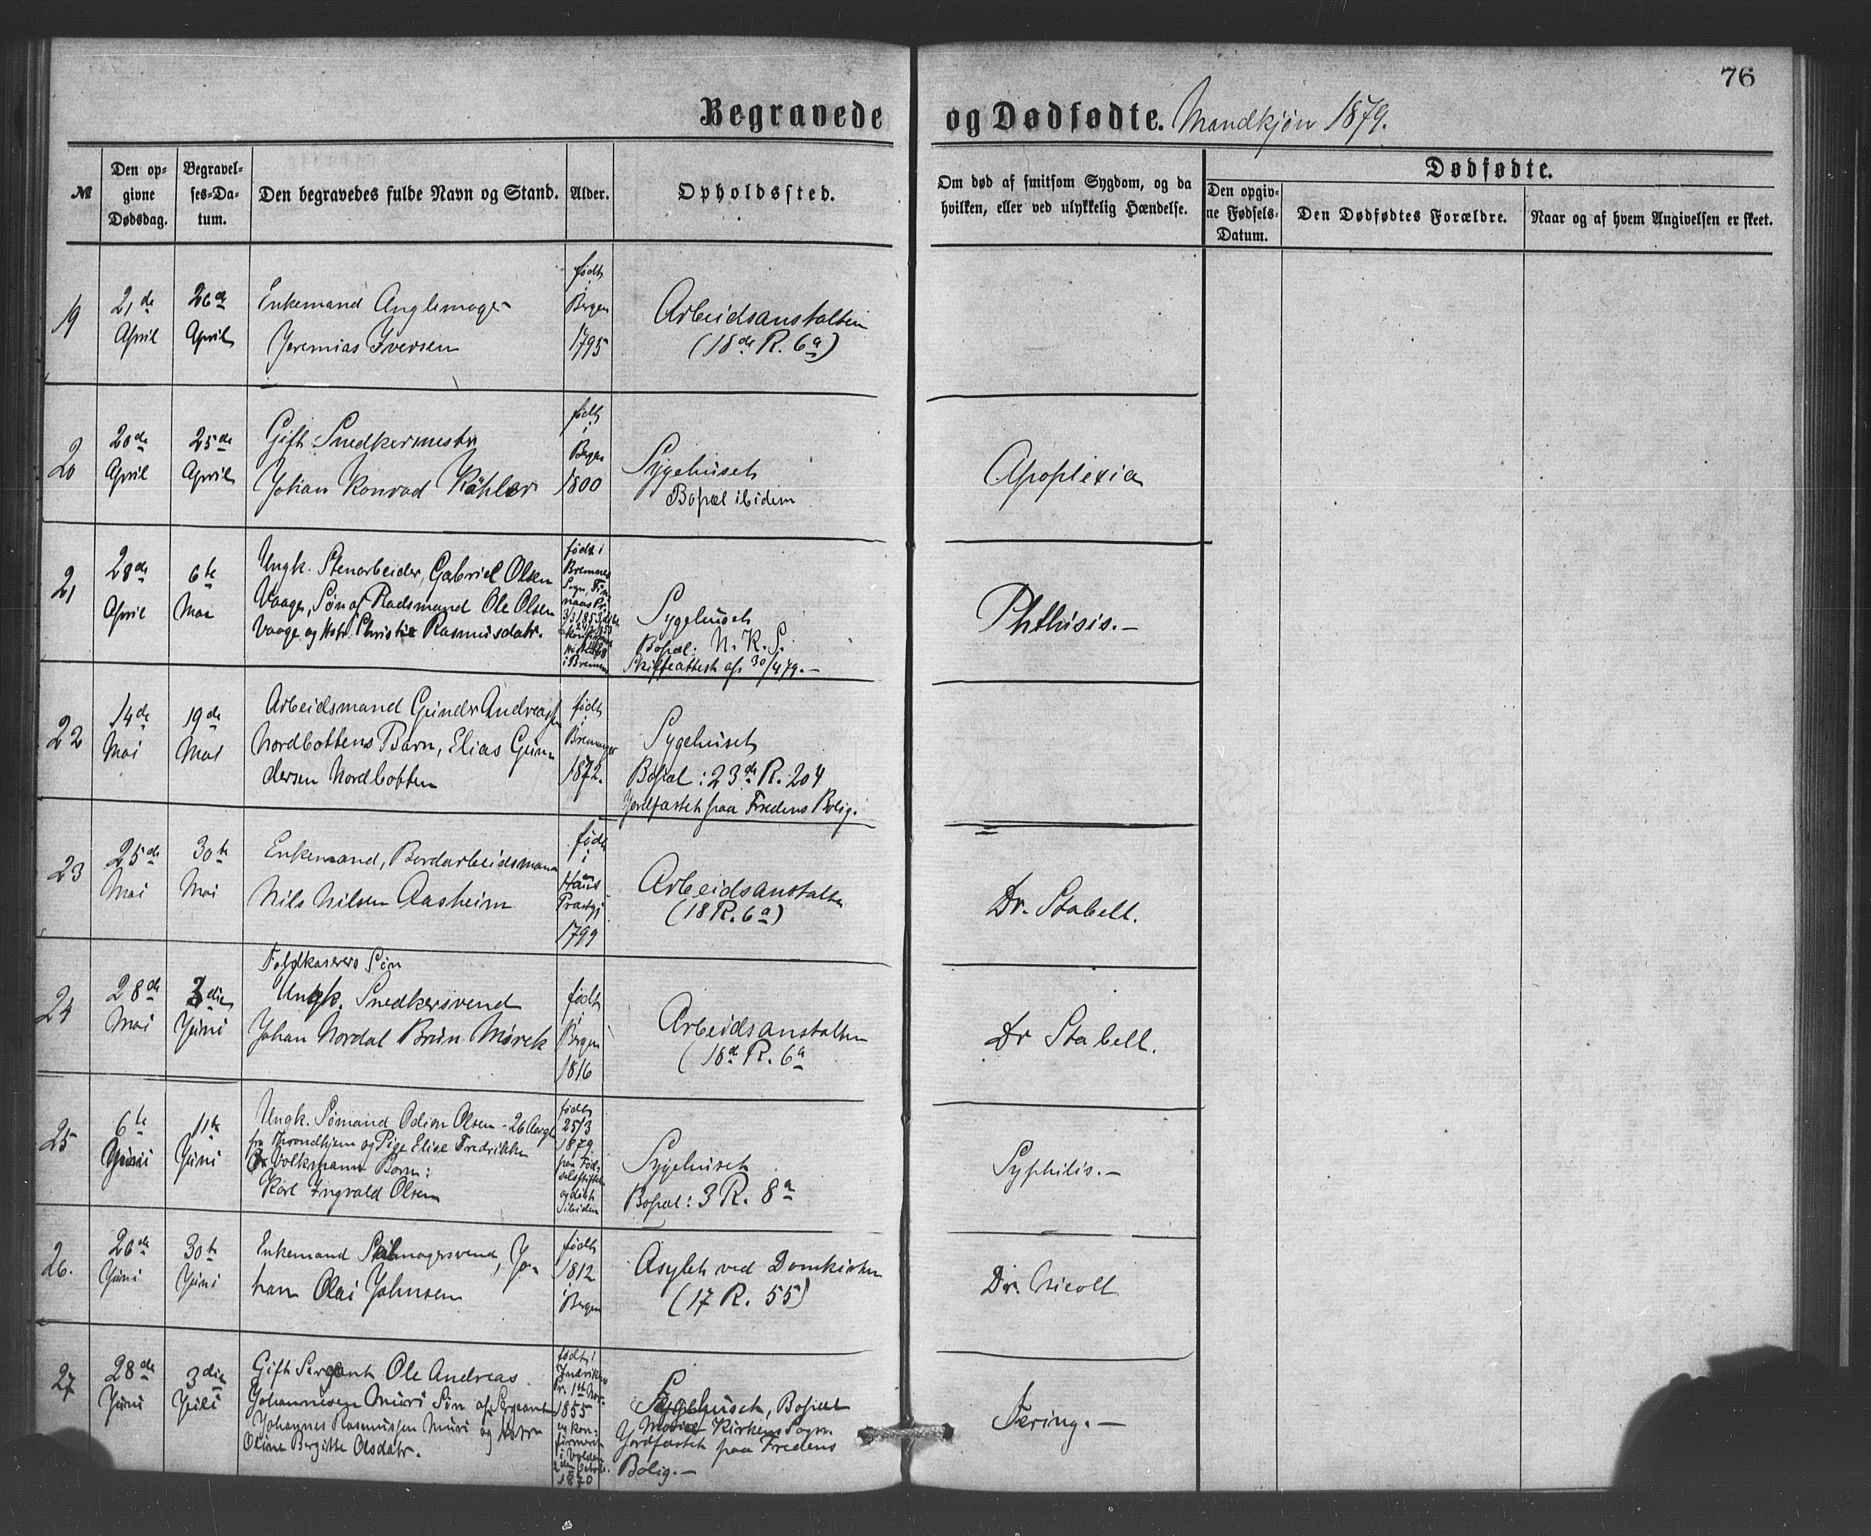 76
Begravede og Dødfødte. Mandkjøn 1879.
№
Den opgivne Dødsdag.
Begravelses-Datum.
Den begravedes fulde Navn og Stand.
Alder.
Opholdssted.
Om død af smitsom Sygdom, og da hvilken, eller ved ulykkelig Hændelse.
Dødfødte.
Den opgivne Fødsels-Datum.
Den Dødfødtes Forældre.
Naar og af hvem Angivelsen er skeet.
19
21de
April
26de
April
Enkemand
Jeremias Iversen
født
i
Bergen
1795
Arbeidsanstalten
(18de R. 6a)
20
20de
April
25de
April
Gift Snedkermester
Johan Konrad Köhler
født
i
Bergen
1800
Sygehuset
Bopæl ibidem
Apoplexia
21
28de
April
6te
Mai
Ungk. Stenarbeider, Gabriel Olsen
Vaage, Søn af Radsmand Ole Olsen
Vaage og Hstr. Christie Rasmusdatr.
født i
Bremnes
Sogn, Fin-
naas Pr.
i Bremnes
Sygehuset
Bopæl: N. K. S.
Skifteattest af 30/4 79.-
Phthisis.-
22
14de
Mai
19de
Mai
Arbeidsmand Gunder Andreassen
Nordbottens Barn, Elias Gun-
dersen Nordbotten
født
i
Bremanger
1872.
Sygehuset
Bopæl: 23de R. 204
Jordfæstet paa Fredens Bolig.
23
25de
Mai
30te
Mai
Enkemand, Bordarbeidsmand
Nils Nilsen Aasheim
født
i
Haus
Præstgj
1799
Arbeidsanstalten
(18 R. 6a)
Dr. Stabell.
24
28de
Mai
3die
Juni
Søn
Ungk. Snedkersvend
Johan Nordal Brun Mørck
født
i
Bergen
1816
Arbeidsanstalten
(18d R. 6a
Dr Stabell.
25
6te
Juni
11te
Juni
Ungk. Sømand Odin Olsen - 26 Aar gl.
fra Throndhjem og Pige Elise Fredrikke
Volkmann Barn:
Karl Ingvald Olsen
født
25/3
1879
paa Fød-
selsstiftelsen
Sygehuset
Bopæl: 3 R. 8a
Syphilis.-
26.
26de
Juni
30te
Juni
Enkemand Seilmagersvend, Jo-
han Olai Johnsen
født
1812
i
Bergen
Asylet ved Domkirken
(17 R. 55)
Dr. Nicoll
27
28de
Juni
3die
Juli
Gift Sergeant Ole Andreas
Johannesen Muri Søn af Sergeant
Johannes Rasmussen Muri og Hstru
Oline Bergitte Olsdatr.
født i
Indviken
Pr. 1te Nov.
1855
og kon-
firmeret
i Volden
2den Octob.
1870
Sygehuset, Bopæl
Kirkens Sogn.
Jordfæstet paa Fredens
Bolig.-
Tæring.-